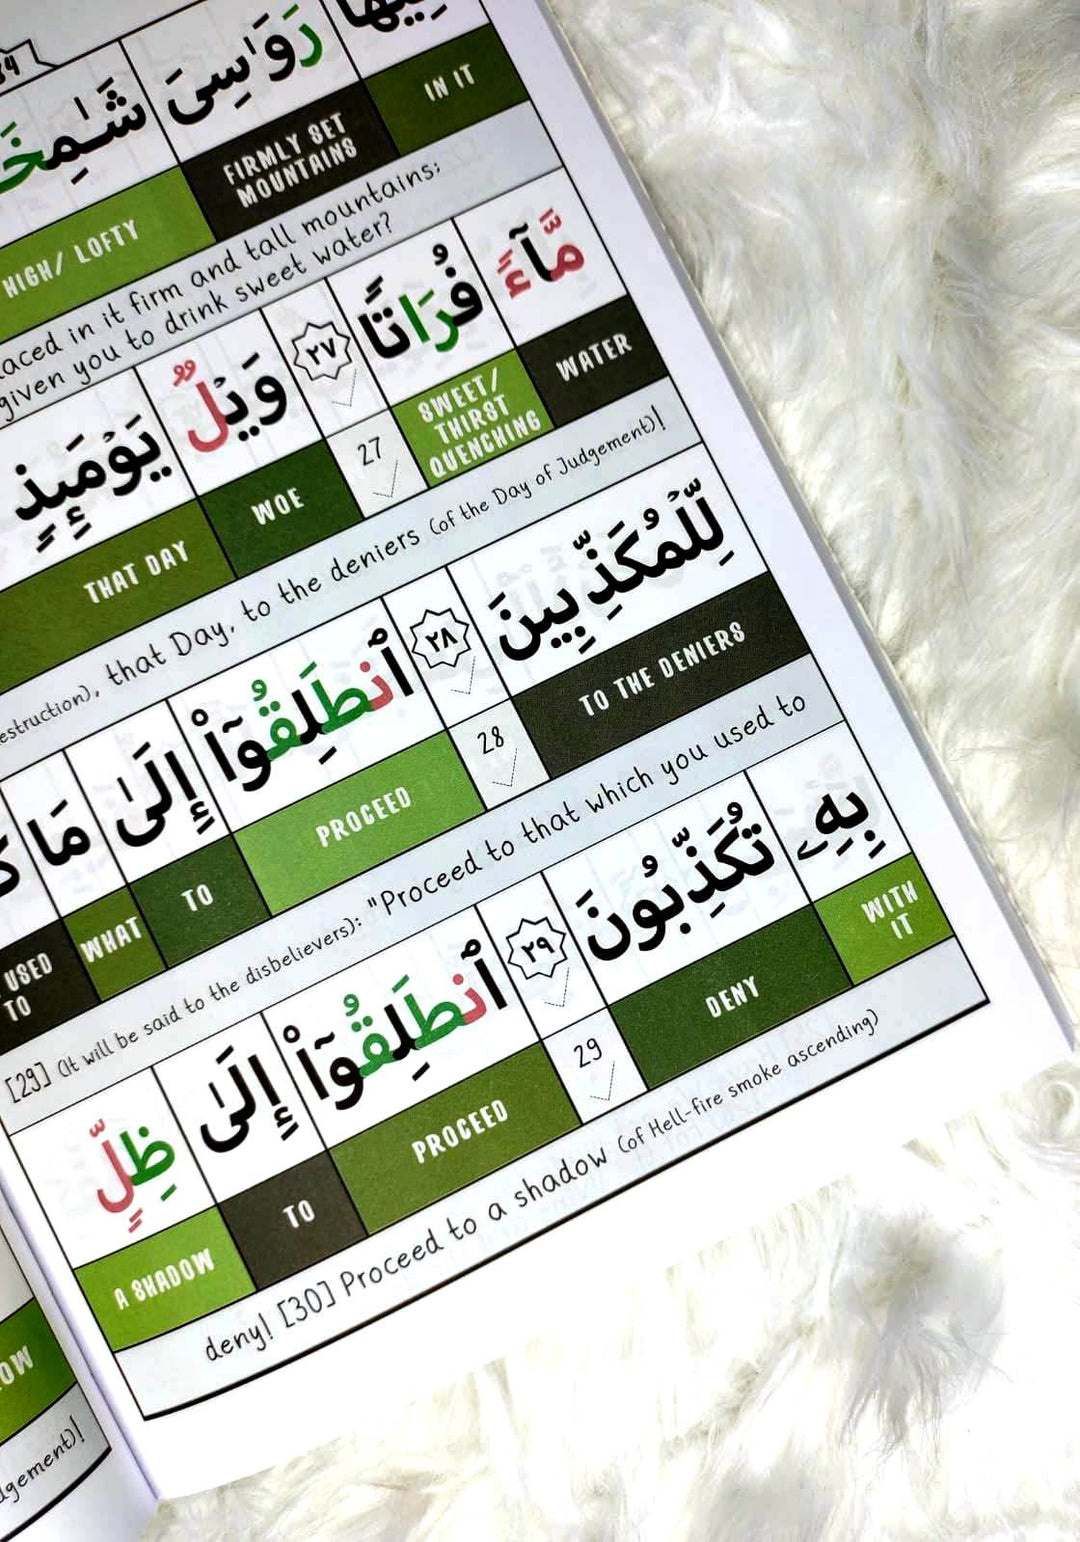 رَوَٰسِىَ
IN IT
FIRMLY SET MOUNTAINS
HIGH/ LOFTY
in it firm and tall mountains;
given you to drink sweet water?
مَّآءً فُرَاتًا ٢٧ وَيْلٌ يَوْمَئِذٍ
WATER
SWEET/ THIRST QUENCHING
27
WOE
THAT DAY
that Day, to the deniers (of the Day of Judgement)!
لِّلْمُكَذِّبِينَ ٢٨ ٱنطَلِقُوٓا۟ إِلَىٰ مَا
TO THE DENIERS
28
PROCEED
TO
WHAT
USED TO
[29] (It will be said to the disbelievers): "Proceed to that which you used to
بِهِۦ تُكَذِّبُونَ ٢٩ ٱنطَلِقُوٓا۟ إِلَىٰ ظِلٍّ
WITH IT
DENY
29
PROCEED
TO
A SHADOW
deny! [30] Proceed to a shadow (of Hell-fire smoke ascending)